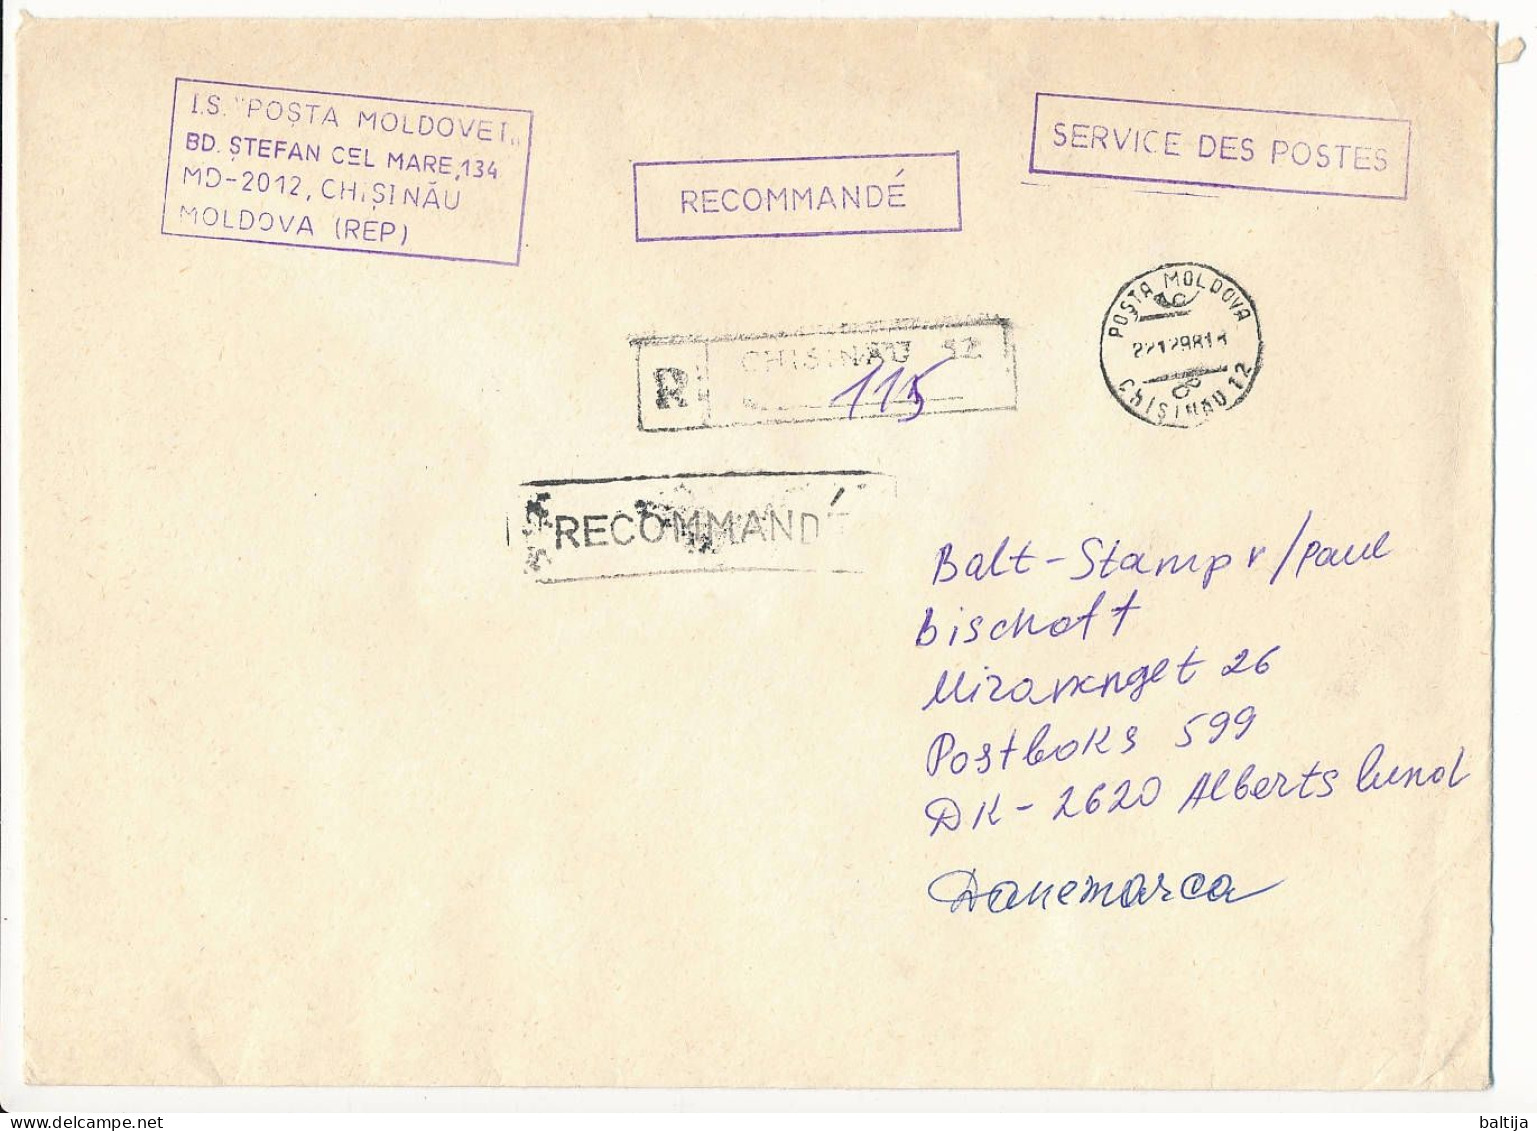 I.S. "POȘTA MOLDOVEI„
BD. ȘTEFAN CEL MARE, 134
MD-2012, CHIȘINĂU
MOLDOVA (REP)
RECOMMANDÉ
SERVICE DES POSTES
POȘTA MOLDOVA
CHIȘINĂU 12
R
CHISINAU 12
115
RECOMMANDÉ
Balt-Stamp v/Paul
Bischoff
Miravænget 26
Postboks 599
DK-2620 Albertslund
Danemarca
delcampe.net
baltija